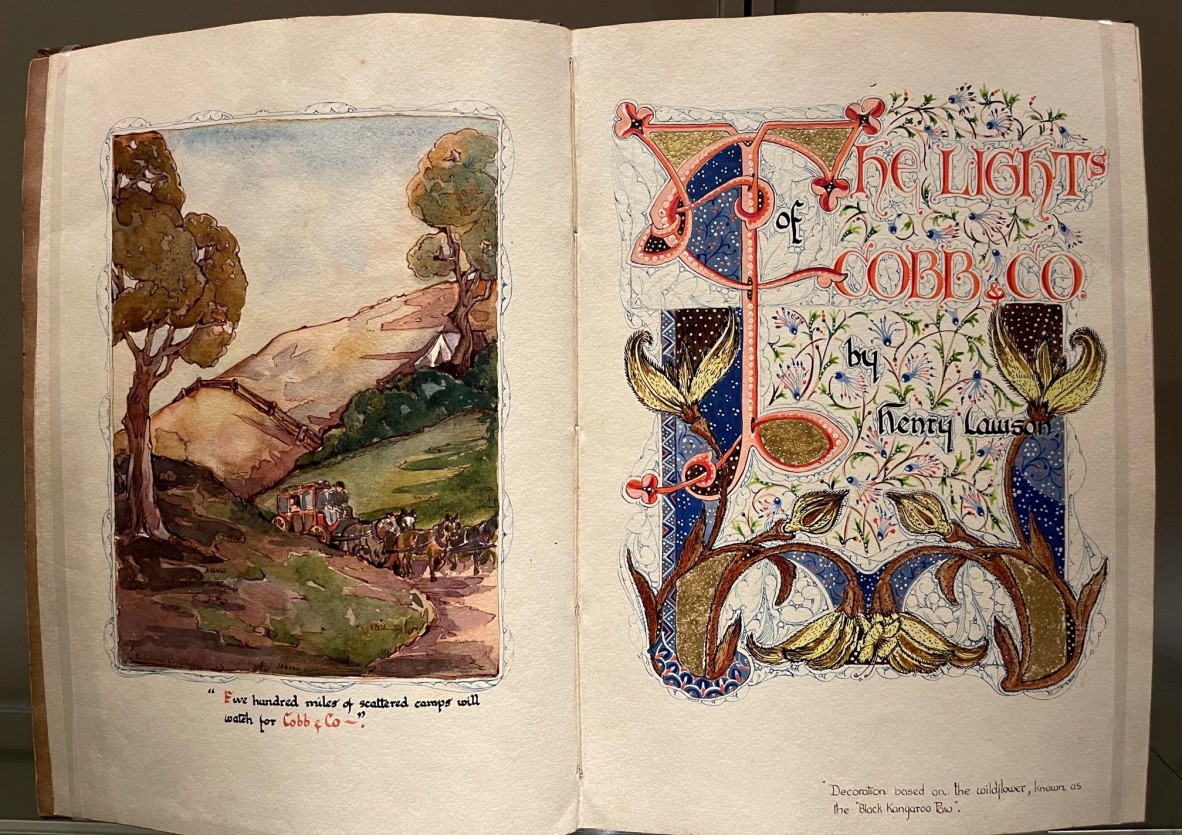 "Five hundred miles of scattered camps will
watch for Cobb & Co —".
The Lights
of
COBB & CO.
by
Henry Lawson
"Decoration based on the wildflower, known as
the "Black Kangaroo Paw".